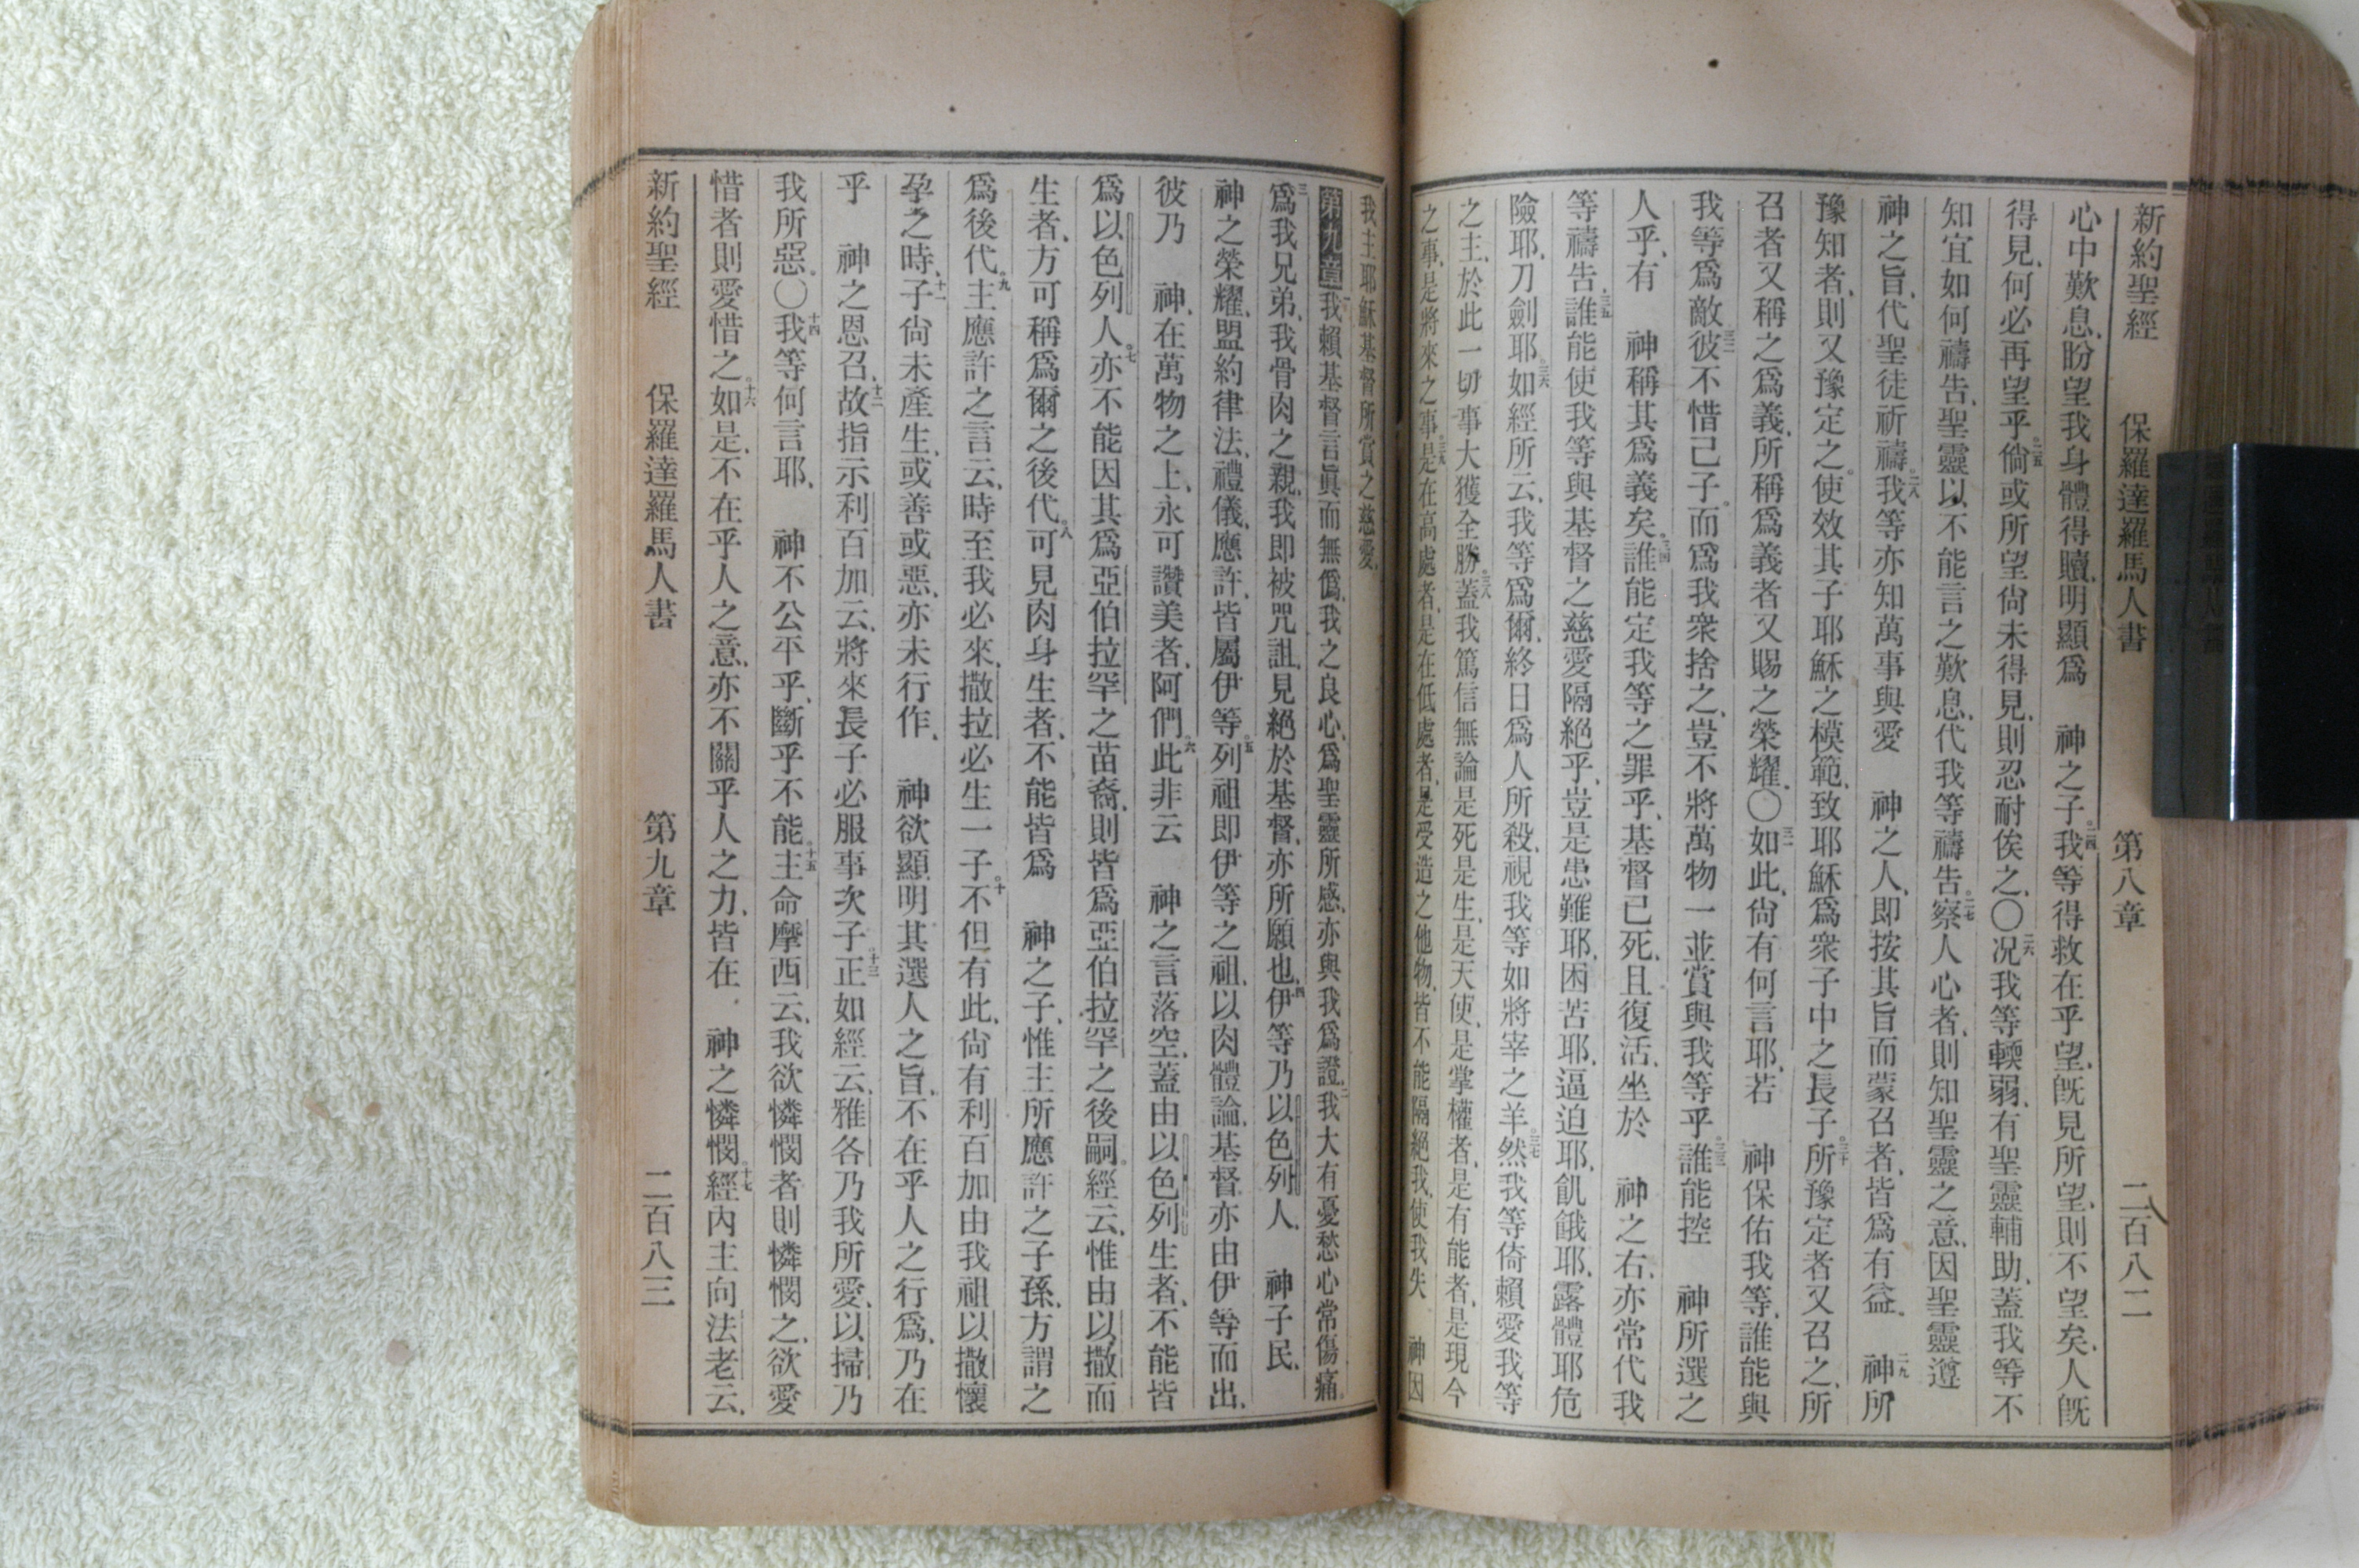 新約聖經　保羅達羅馬人書　第八章　二百八二
心中歎息、盼望我身體得贖、明顯爲　神之子。二四我等得救在乎望、旣見所望、則不望矣、人旣
得見、何必再望乎。二五倘或所望尙未得見、則忍耐俟之、〇二六况我等輭弱、有聖靈輔助、蓋我等不
知宜如何禱吿、聖靈以不能言之歎息、代我等禱吿。二七察人心者、則知聖靈之意、因聖靈遵
神之旨、代聖徒祈禱。二八我等亦知萬事與愛　神之人、即按其旨而蒙召者、皆爲有益。　二九神所
豫知者、則又豫定之。使效其子耶穌之模範、致耶穌爲衆子中之長子。三十所豫定者又召之、所
召者又稱之爲義、所稱爲義者又賜之榮耀、〇三一如此、尙有何言耶、若　神保佑我等、誰能與
我等爲敵。三二彼不惜己子。而爲我衆捨之、豈不將萬物一並賞與我等乎。三三誰能控　神所選之
人乎、有　神稱其爲義矣。三四誰能定我等之罪乎、基督已死、且復活、坐於　神之右、亦常代我
等禱吿、三五誰能使我等與基督之慈愛隔絕乎、豈是患難耶、困苦耶、逼迫耶、飢餓耶、露體耶、危
險耶、刀劍耶。三六如經所云、我等爲爾、終日爲人所殺、視我等如將宰之羊。三七然我等倚賴愛我等
之主、於此一切事大獲全勝。三八蓋我篤信無論是死是生、是天使、是掌權者、是有能者、是現今
之事、是將來之事。三九是在高處者、是在低處者、是受造之他物、皆不能隔絕我、使我失　神因
我主耶穌基督所賞之慈愛、
第九章一我賴基督言眞而無僞、我之良心、爲聖靈所感、亦與我爲證、二我大有憂愁心常傷痛。
三爲我兄弟、我骨肉之親、我即被咒詛、見絕於基督、亦所願也、四伊等乃以色列人、　神子民、
神之榮耀、盟約律法、禮儀、應許、皆屬伊等。五列祖即伊等之祖、以肉體論、基督亦由伊等而出、
彼乃　神、在萬物之上、永可讚美者、阿們。六此非云　神之言落空、蓋由以色列生者、不能皆
爲以色列人。七亦不能因其爲亞伯拉罕之苗裔、則皆爲亞伯拉罕之後嗣。經云、惟由以撒而
生者、方可稱爲爾之後代。八可見肉身生者、不能皆爲　神之子、惟主所應許之子孫、方謂之
爲後代。九主應許之言云、時至我必來、撒拉必生一子。十不但有此、尙有利百加由我祖以撒懷
孕之時、十一子尙未產生、或善或惡、亦未行作、　神欲顯明其選人之旨、不在乎人之行爲、乃在
乎　神之恩召、十二故指示利百加云、將來長子必服事次子。十三正如經云、雅各乃我所愛、以掃乃
我所惡。〇十四我等何言耶、　神不公平乎、斷乎不能。十五主命摩西云、我欲憐憫者則憐憫之、欲愛
惜者則愛惜之。十六如是、不在乎人之意、亦不關乎人之力、皆在　神之憐憫。十七經內主向法老云、
新約聖經　保羅達羅馬人書　第九章　二百八三